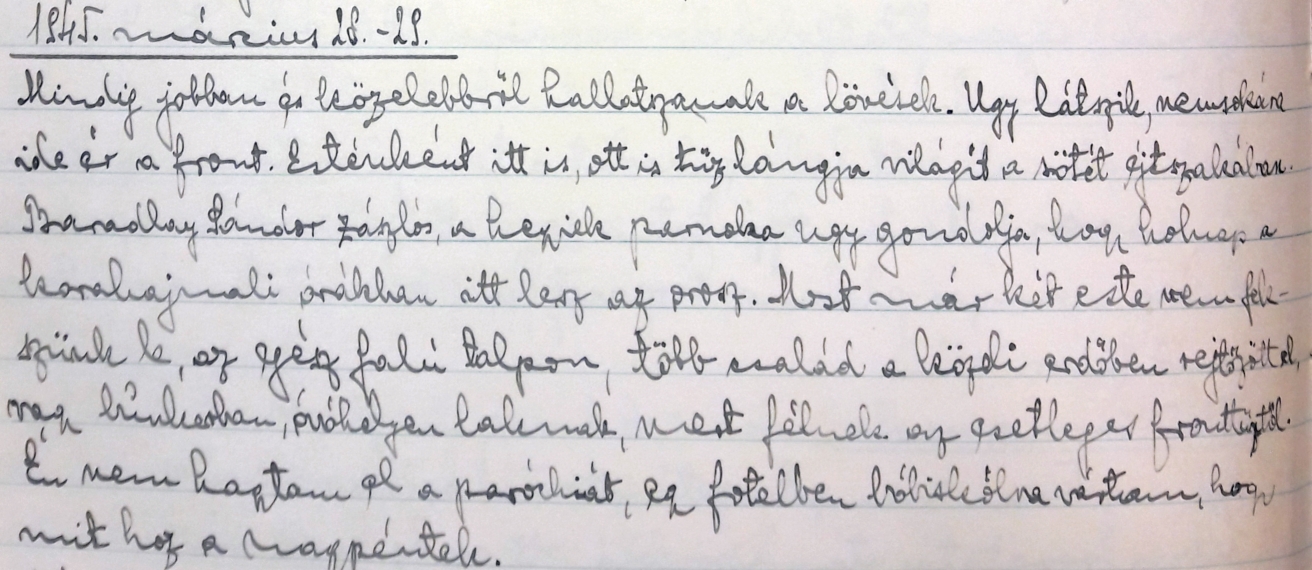 1945. március 28.-29.
Mindig jobban és közelebbről hallatszanak a lövések. Ugy látszik, nemsokára
ide ér a front. Esténként itt is, ott is tűz lángja világít a sötét éjtszakában.
Baradlay Sándor zászlós, a parancsnoka ugy gondolja, hogy holnap a
korahajnali órákban itt lesz az orosz. Most már két este nem fek-
szünk le, az egész falu talpon, több család a közeli erdőben rejtőzött el,
vagy búnkerban, óvóhelyen laknak, mert félnek az esetleges fronttűztől.
Én nem hagytam el a paróchiát, egy fotelben bóbiskólva vártam, hogy
mit hoz a nagypéntek.